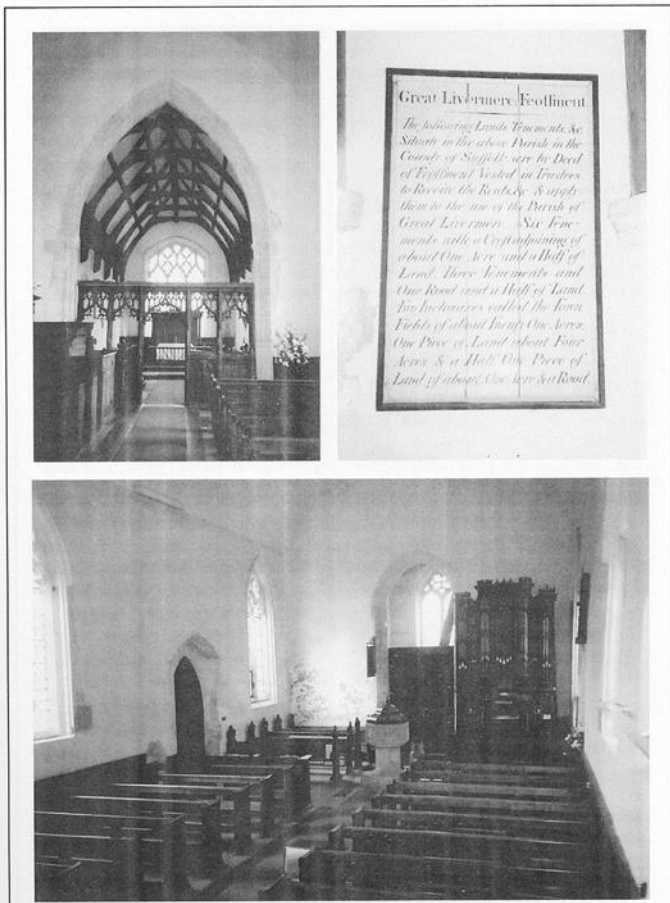 Great Livermere Feoffment
The following Lands Tenements &c
Situate in the above Parish in the
County of Suffolk are by Deed
of Feoffment Vested in Trustees
to Receive the Rents &c & apply
them to the use of the Parish of
Great Livermere. Six Tene-
ments with a Croft adjoining of
about One Acre and a Half of
Land. Three Tenements and
One Rood and a Half of Land.
Two Inclosures called the Town
Fields of about Twenty One Acres.
One Piece of Land about Four
Acres & a Half. One Piece of
Land of about One Acre & a Rood.